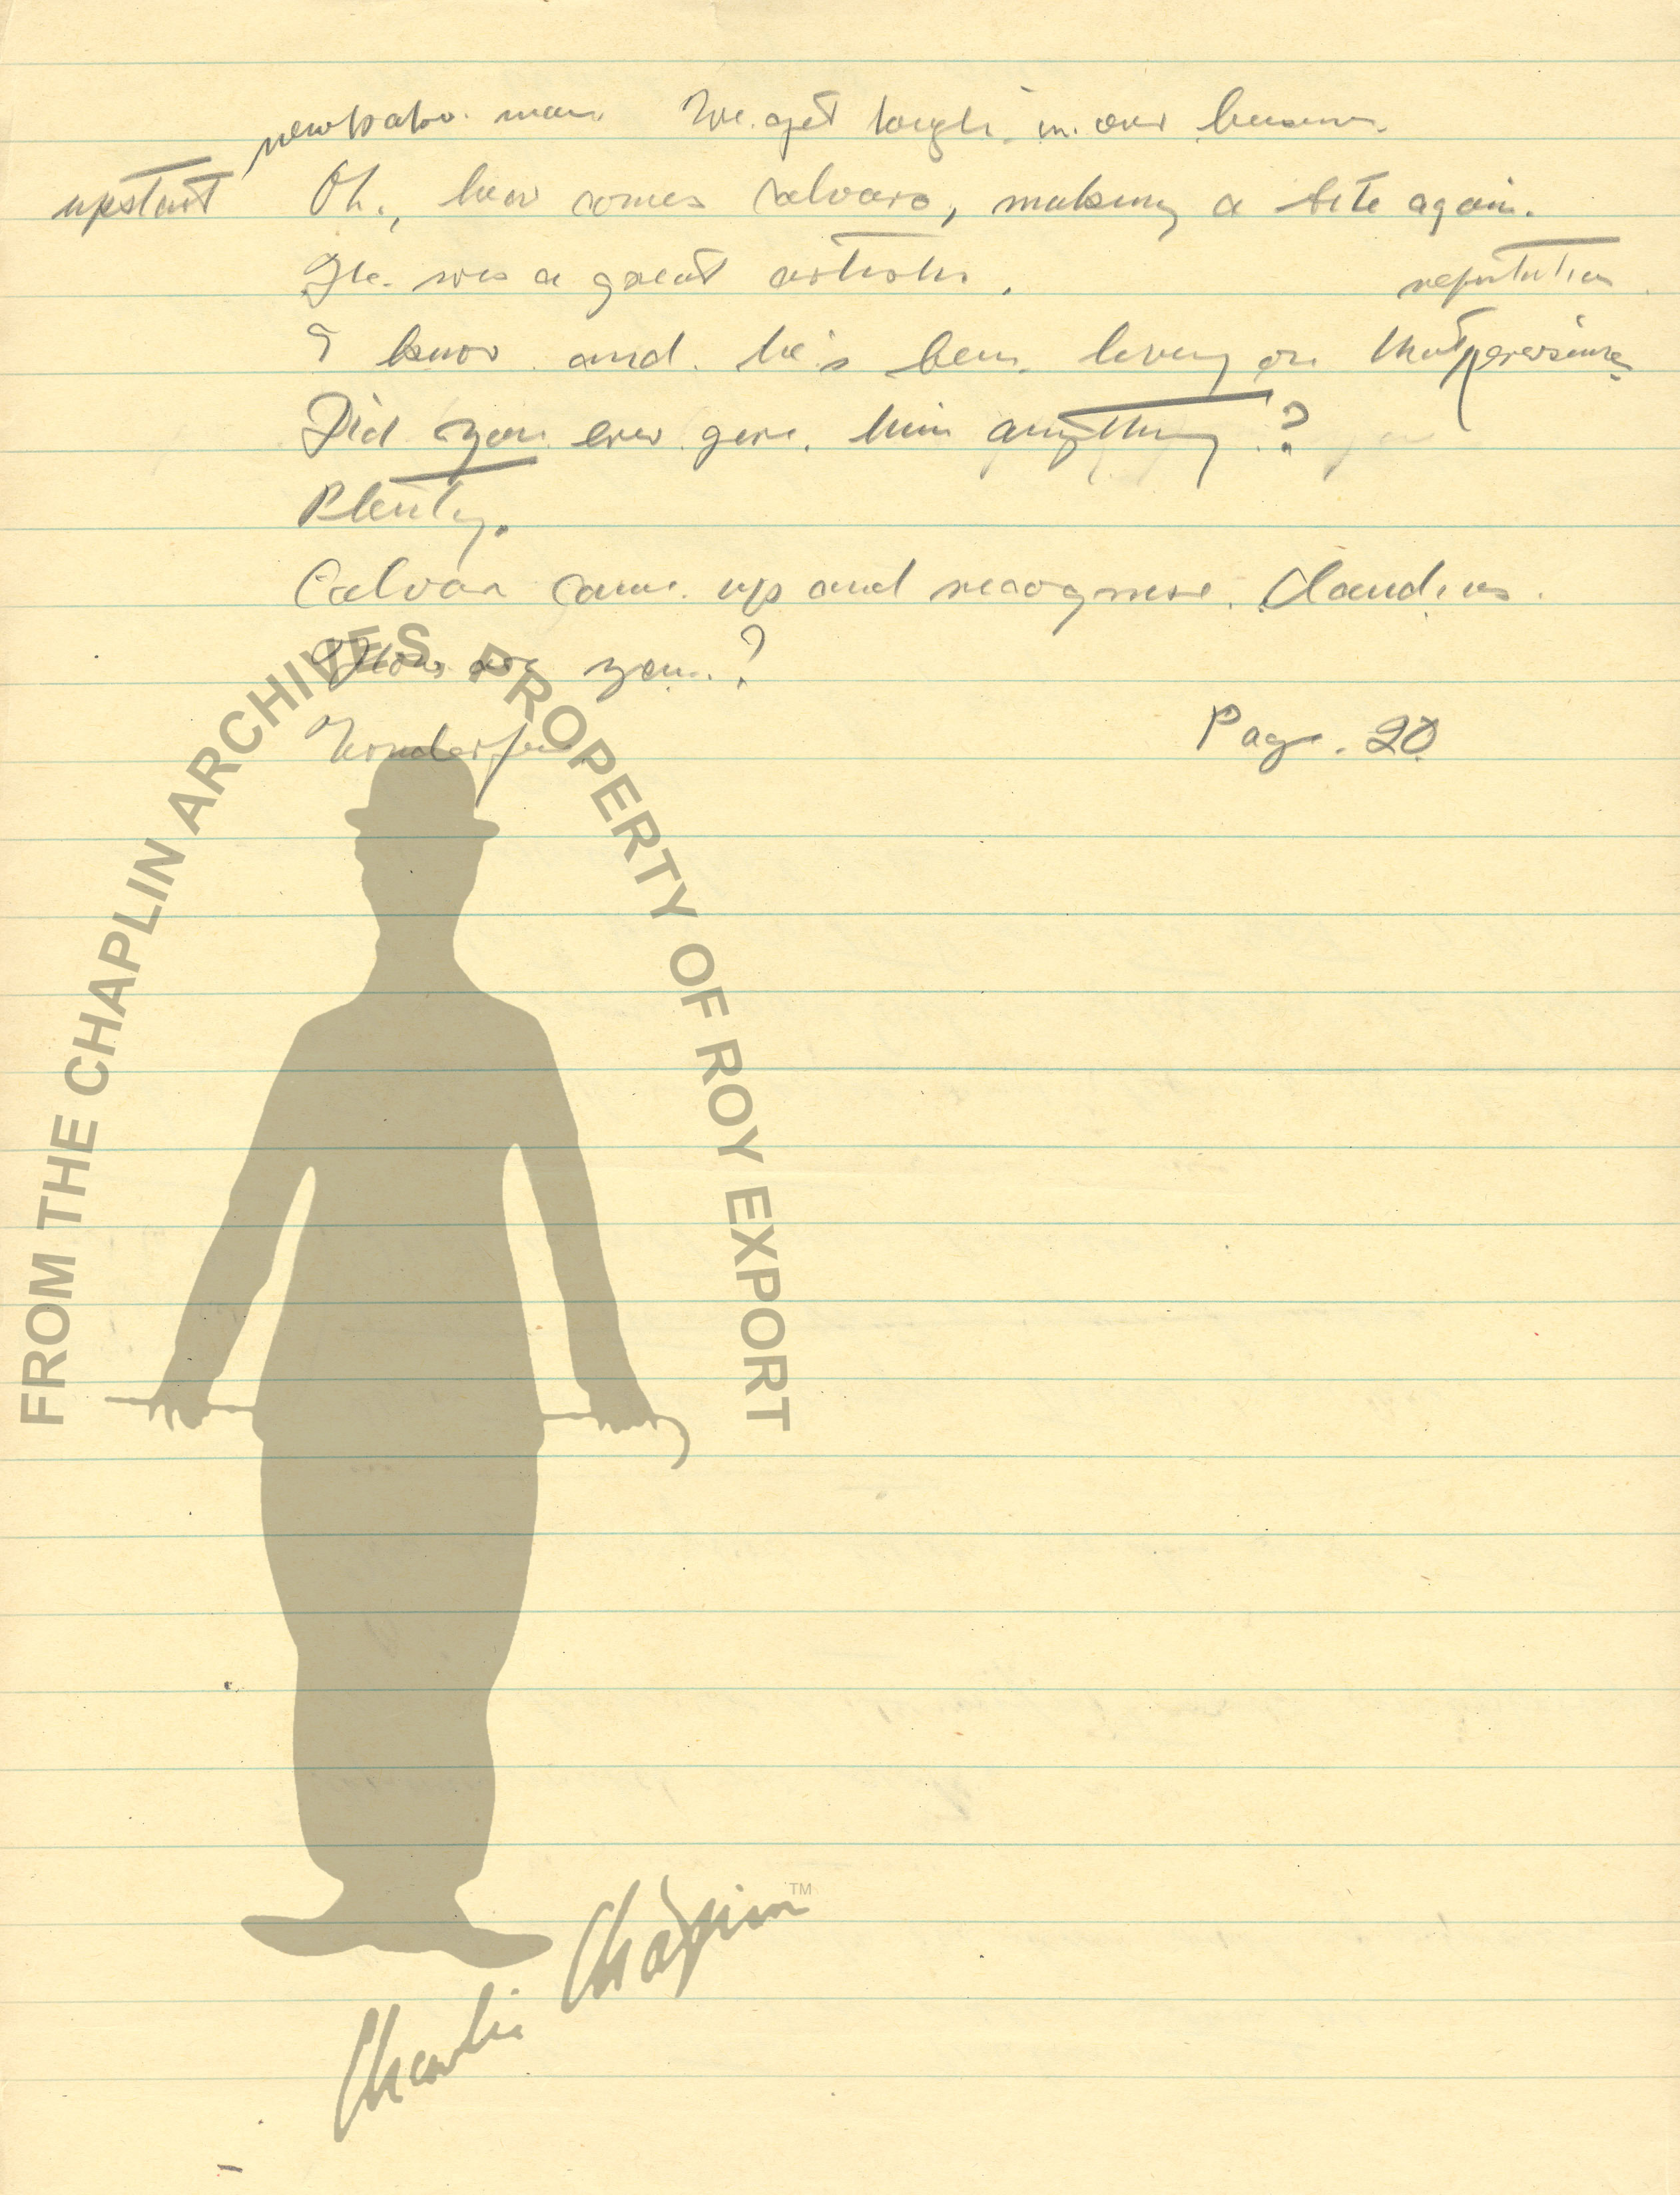 newspaper man. We get tough in our business.
upstart Oh, here comes Calvero, making a bite again.
He was a great artist.
reputation
I know and he's been living on that ever since
Did you ever give him anything?
Plenty.
Calvero came up and recognise Claudius.
How are you?
Wonderful
Page. 20
FROM THE CHAPLIN ARCHIVES PROPERTY OF ROY EXPORT
Charlie Chaplin™